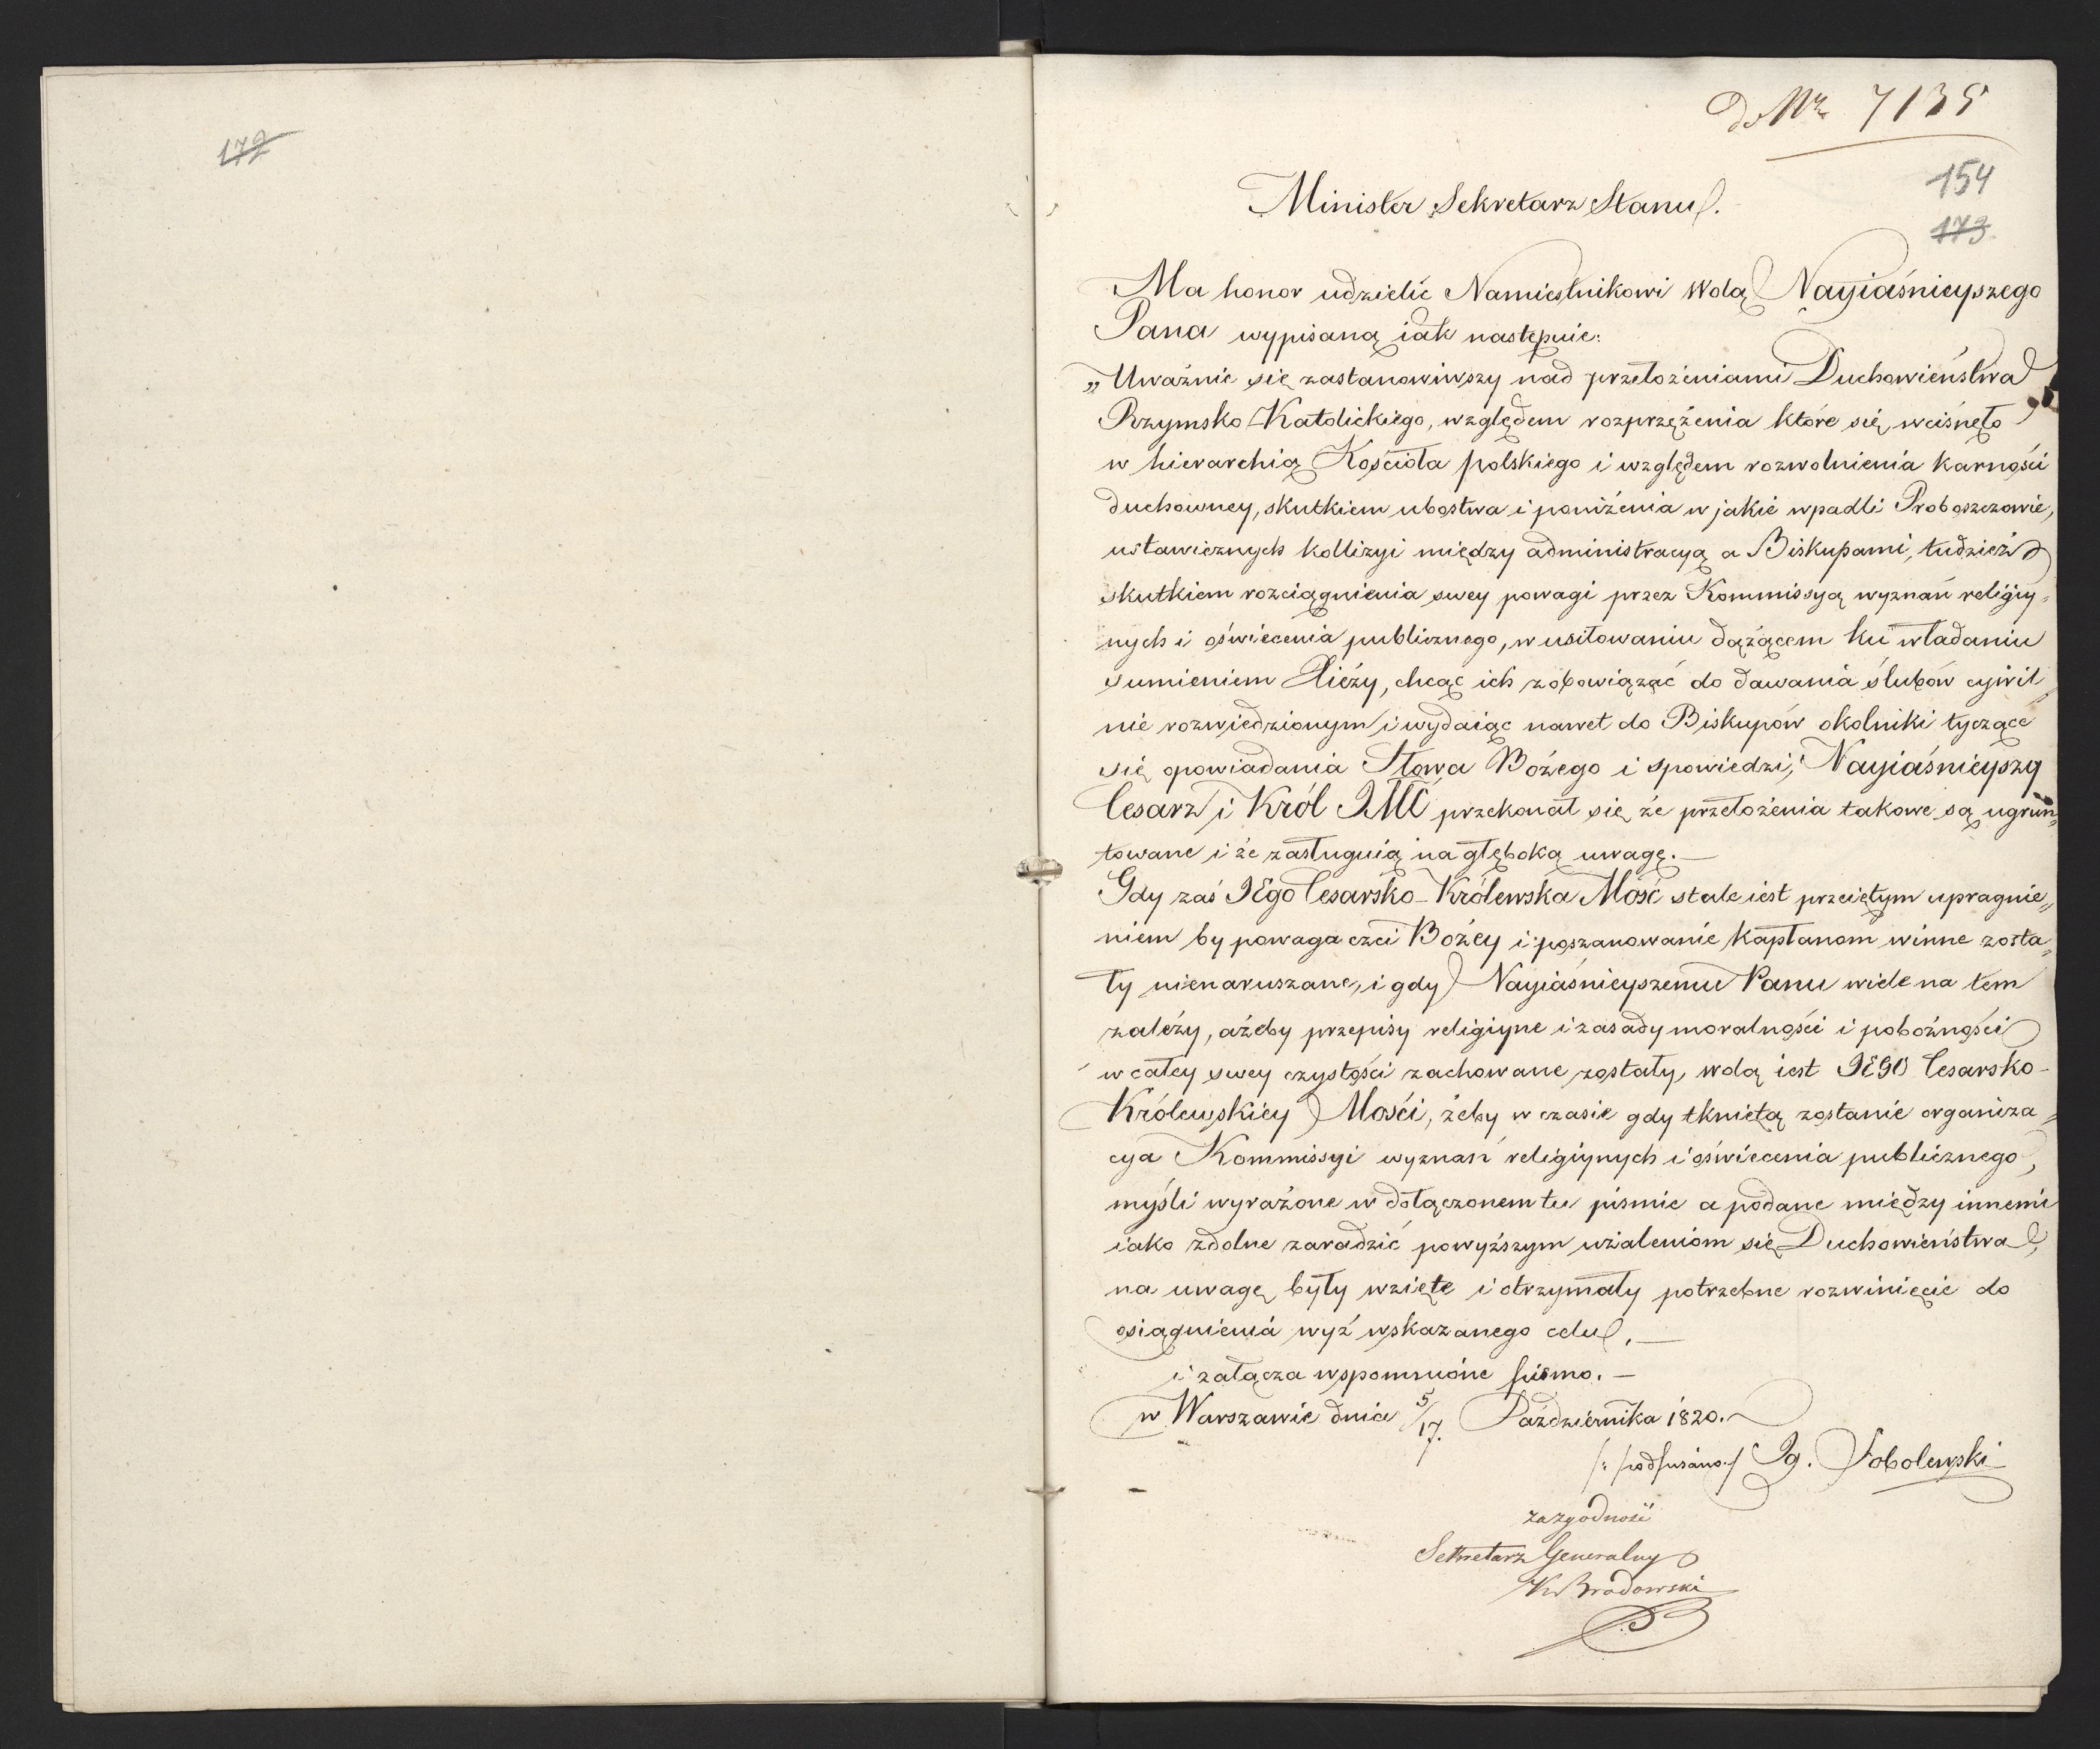 172
Do Nr 7135
154
173.
Minister Sekretarz Stanu.
Ma honor udzielić Namiestnikowi wolą Nayiaśnieyszego
Pana wypisaną iak następuie:
„Uważnie się zastanowiwszy nad przełożeniami Duchowieństwa
Rzymsko-Katolickiego, względem rozprzężenia które się wcisnęło
w hierarchią Kościoła polskiego i względem rozwolnienia karności
duchowney, skutkiem ubóstwa i poniżenia w jakie wpadli Proboszczowie,
ustawicznych kollizyi między administracyą a Biskupami, tudzież
skutkiem rozciągnienia swey powagi przez Kommissyą wyznań religiy„
nych i oświecenia publicznego, w usiłowaniu dążącem ku władaniu
sumieniem Xięży, chcąc ich zobowiązać do dawania ślubów cywil„
nie rozwiedzionym i wydaiąc nawet do Biskupów okolniki tyczące
się opowiadania Słowa Bożego i spowiedzi; Nayiaśnieyszy
Cesarz i Król JMC przekonał się że przełożenia takowe są ugrun„
towane i że zasługuią na głęboką uwagę.—
Gdy zaś JEgo Cesarsko-Królewska Mość stale iest przeiętym upragnie„
niem by powaga czci Bożey i poszanowanie kapłanom winne zosta„
ły nienaruszane, i gdy Nayiaśnieyszemu Panu wiele na tem
zależy, ażeby przepisy religiyne i zasady moralności i pobożności
w całey swey czystości zachowane zostały, wolą iest JEGO Cesarsko-
Królewskiey Mości, żeby w czasie gdy tkniętą zostanie organiza„
cya Kommissyi wyznań religiynych i oświecenia publicznego,
myśli wyrażone w dołączonem tu piśmie a podane między innemi
iako zdolne zaradzić powyższym użaleniom się Duchowieństwa,
na uwagę były wzięte i otrzymały potrzebne rozwinięcie do
osiągnienia wyż wskazanego celu.—
i załącza wspomnione pismo.—
w Warszawie dnia 5/17. Października 1820.
/: podpisano :/ Ig. Sobolewski
za zgodność
Sekretarz Generalny
K Brodowski